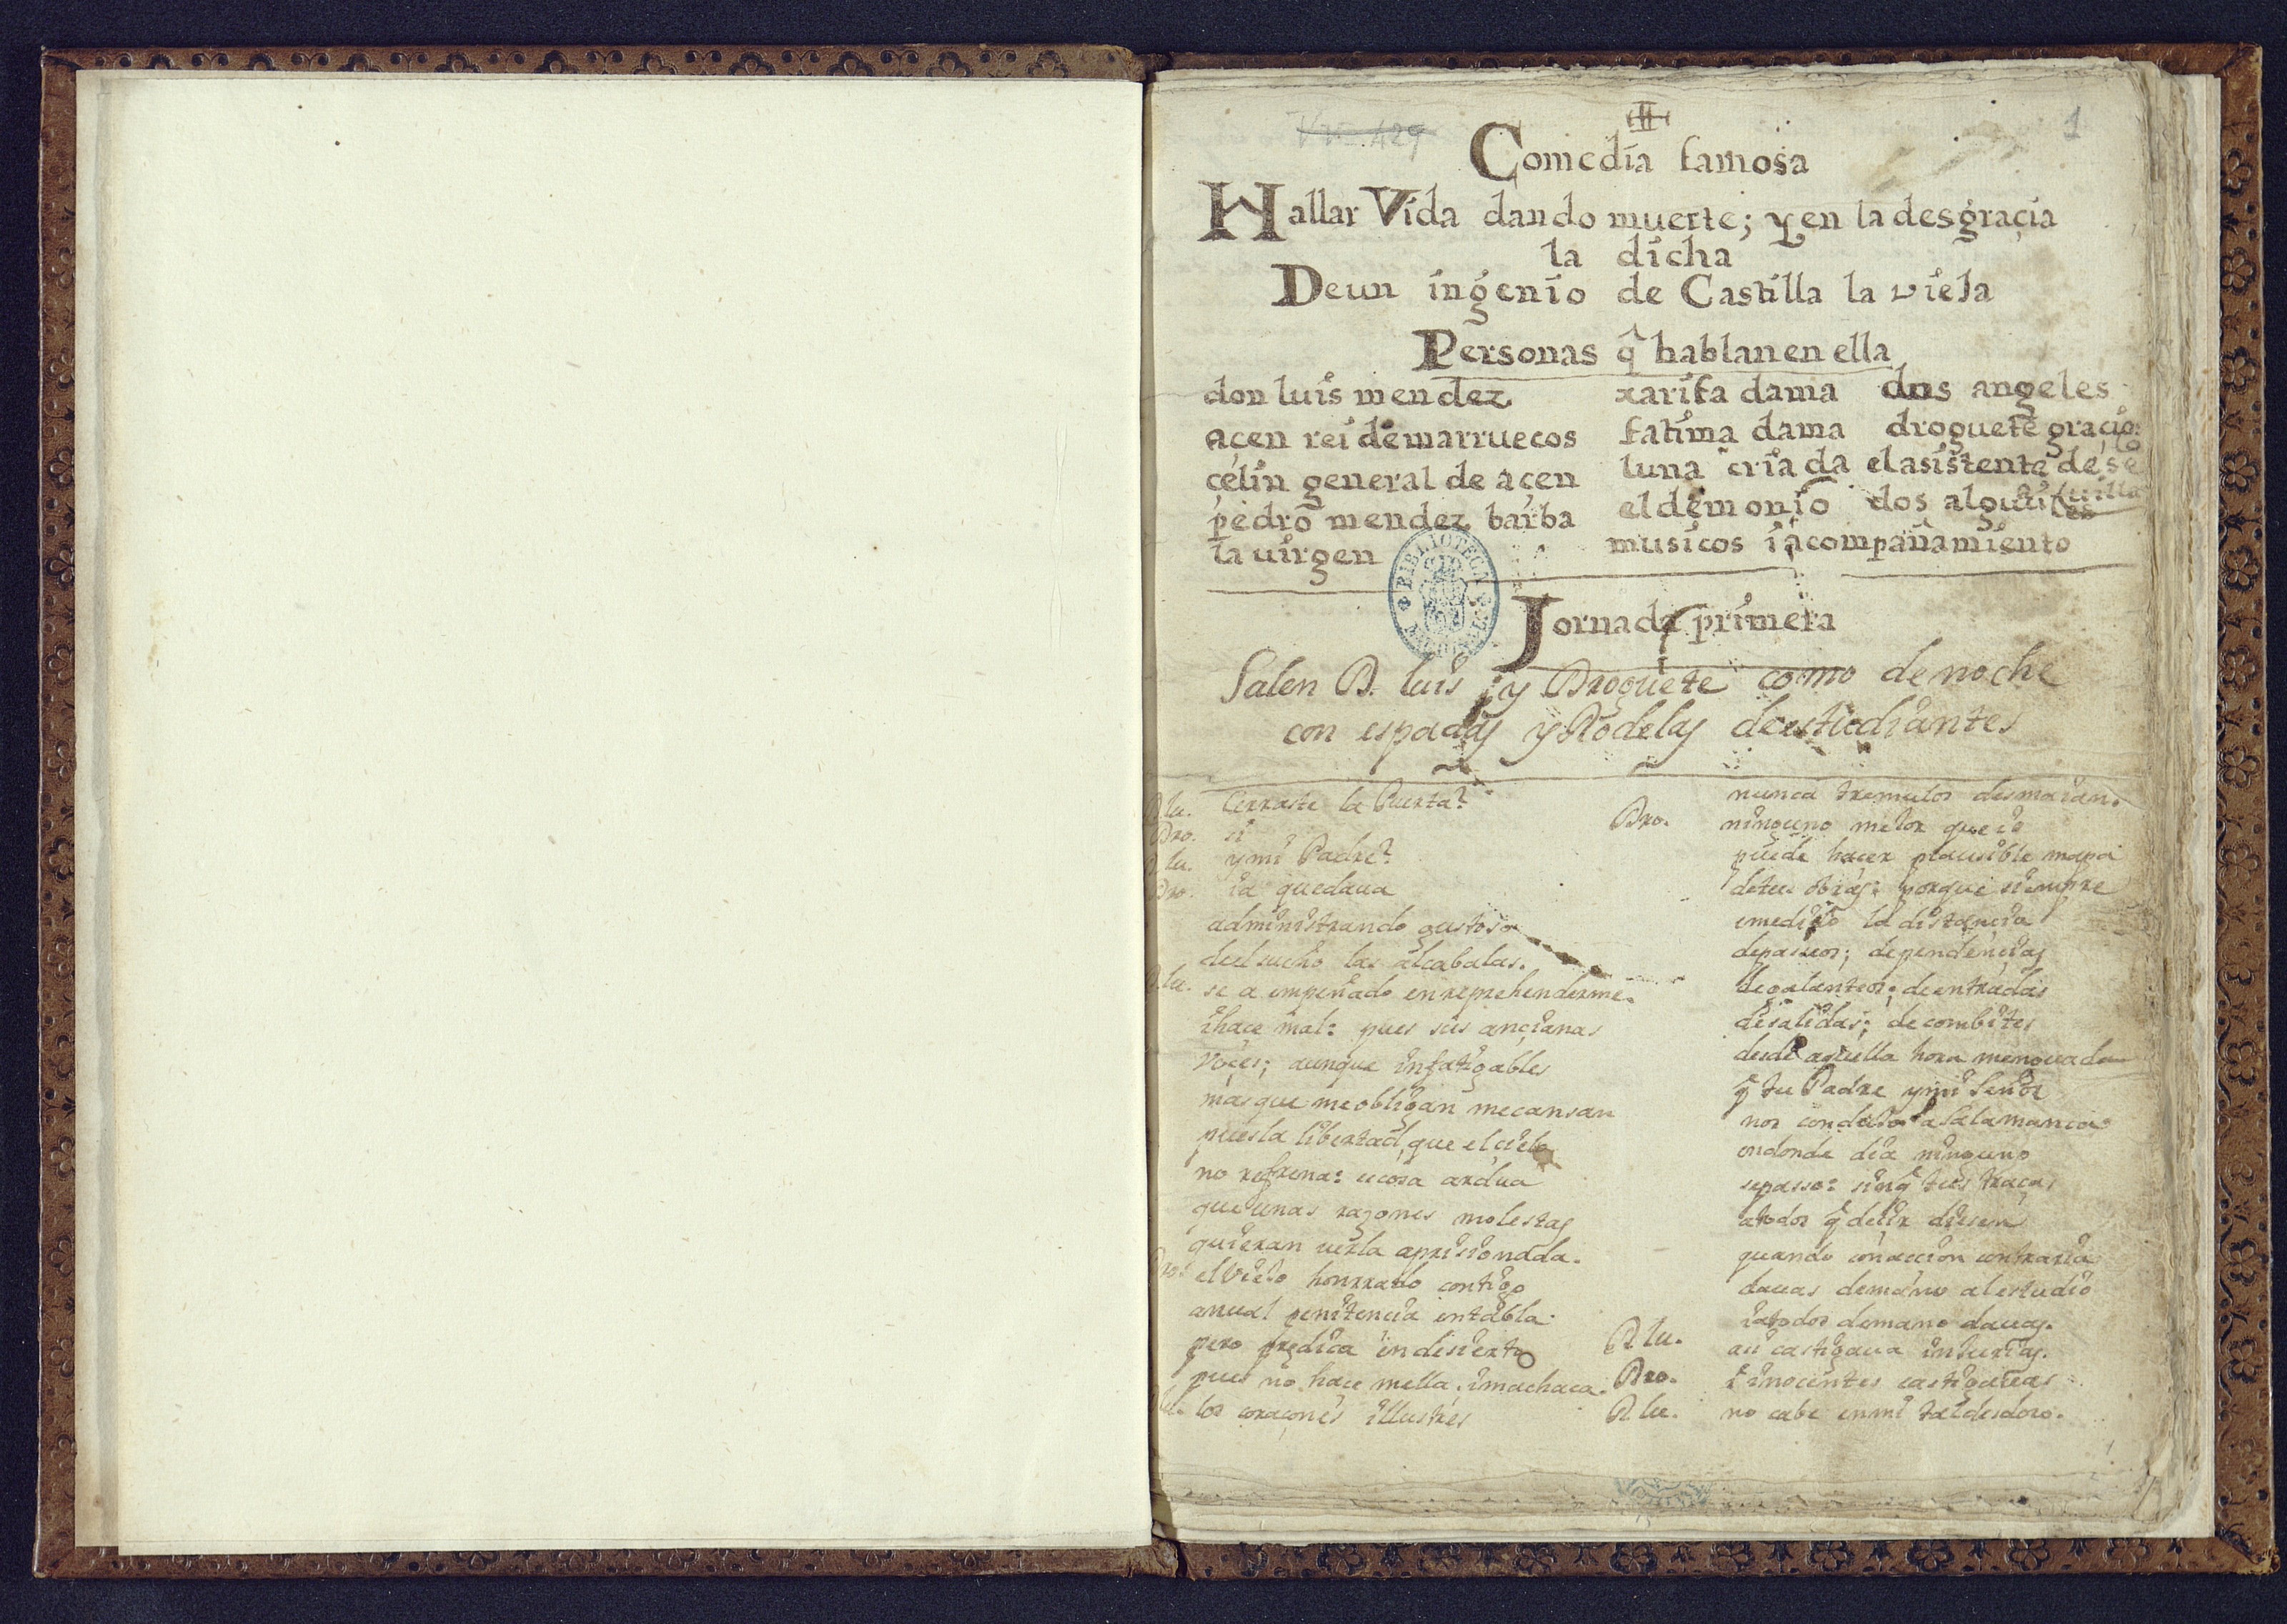 Vv. 429
1
Comedia famosa
Hallar Vida dando muerte; y en la desgraçia
la dicha
De un ingenio de Castilla la vieja
Personas q̃ hablan en ella
don luis mendez
açen rei de marruecos
çelin general de açen
pedro mendez barba
la uirgen
xarifa dama
fatima dama
luna criada
el demonio
musicos i acompañamiento
dos angeles
droguete graçioso
el asistente de seuilla
dos alguaciles
BIBLIOTECA
Jornada primera
Salen D. luis y Droguete como de noche
con espadas y Rodelas de estudiantes
D lu. Cerraste la Puerta?
Dro. si
D lu. y mi Padre?
Dro. ia quedaua
administrando gustoso
del sueño las alcabalas.
D lu. se a empeñado en reprehenderme.
i hace mal: pues sus ançianas
voçes; aunque infatigables
mas que me obligan me cansan
pues la libertad, que el çielo
no refrena: es cosa ardua
que unas razones molestas
quieran uerla aprisionada.
Dro. el Viejo honrrado contigo
anual penitencia entabla.
pero predica en desierto
pues no hace mella, i machaca.
D lu. los coraçones illustres
nunca tremulos desmaian.
Dro. ninguno mejor que io
puede hacer plausible mapa
de tus obras: porque siempre
e medido la distançia
de passeos; de pendençias
de galanteos; de entradas
de salidas; de combites
desde aquella hora menguada
q̃ tu Padre y mi Señor
nos condujo a Salamanca
en donde dia ninguno
se passo: sin q̃ tus traças
a todos q̃ deçir diesen
quando con accion contraria
dauas de mano al estudio
i a todos de mano dauas.
D lu. asi castigaua injurias.
Dro. E inocentes castigauas
D lu. no cabe en mi tal desdoro.